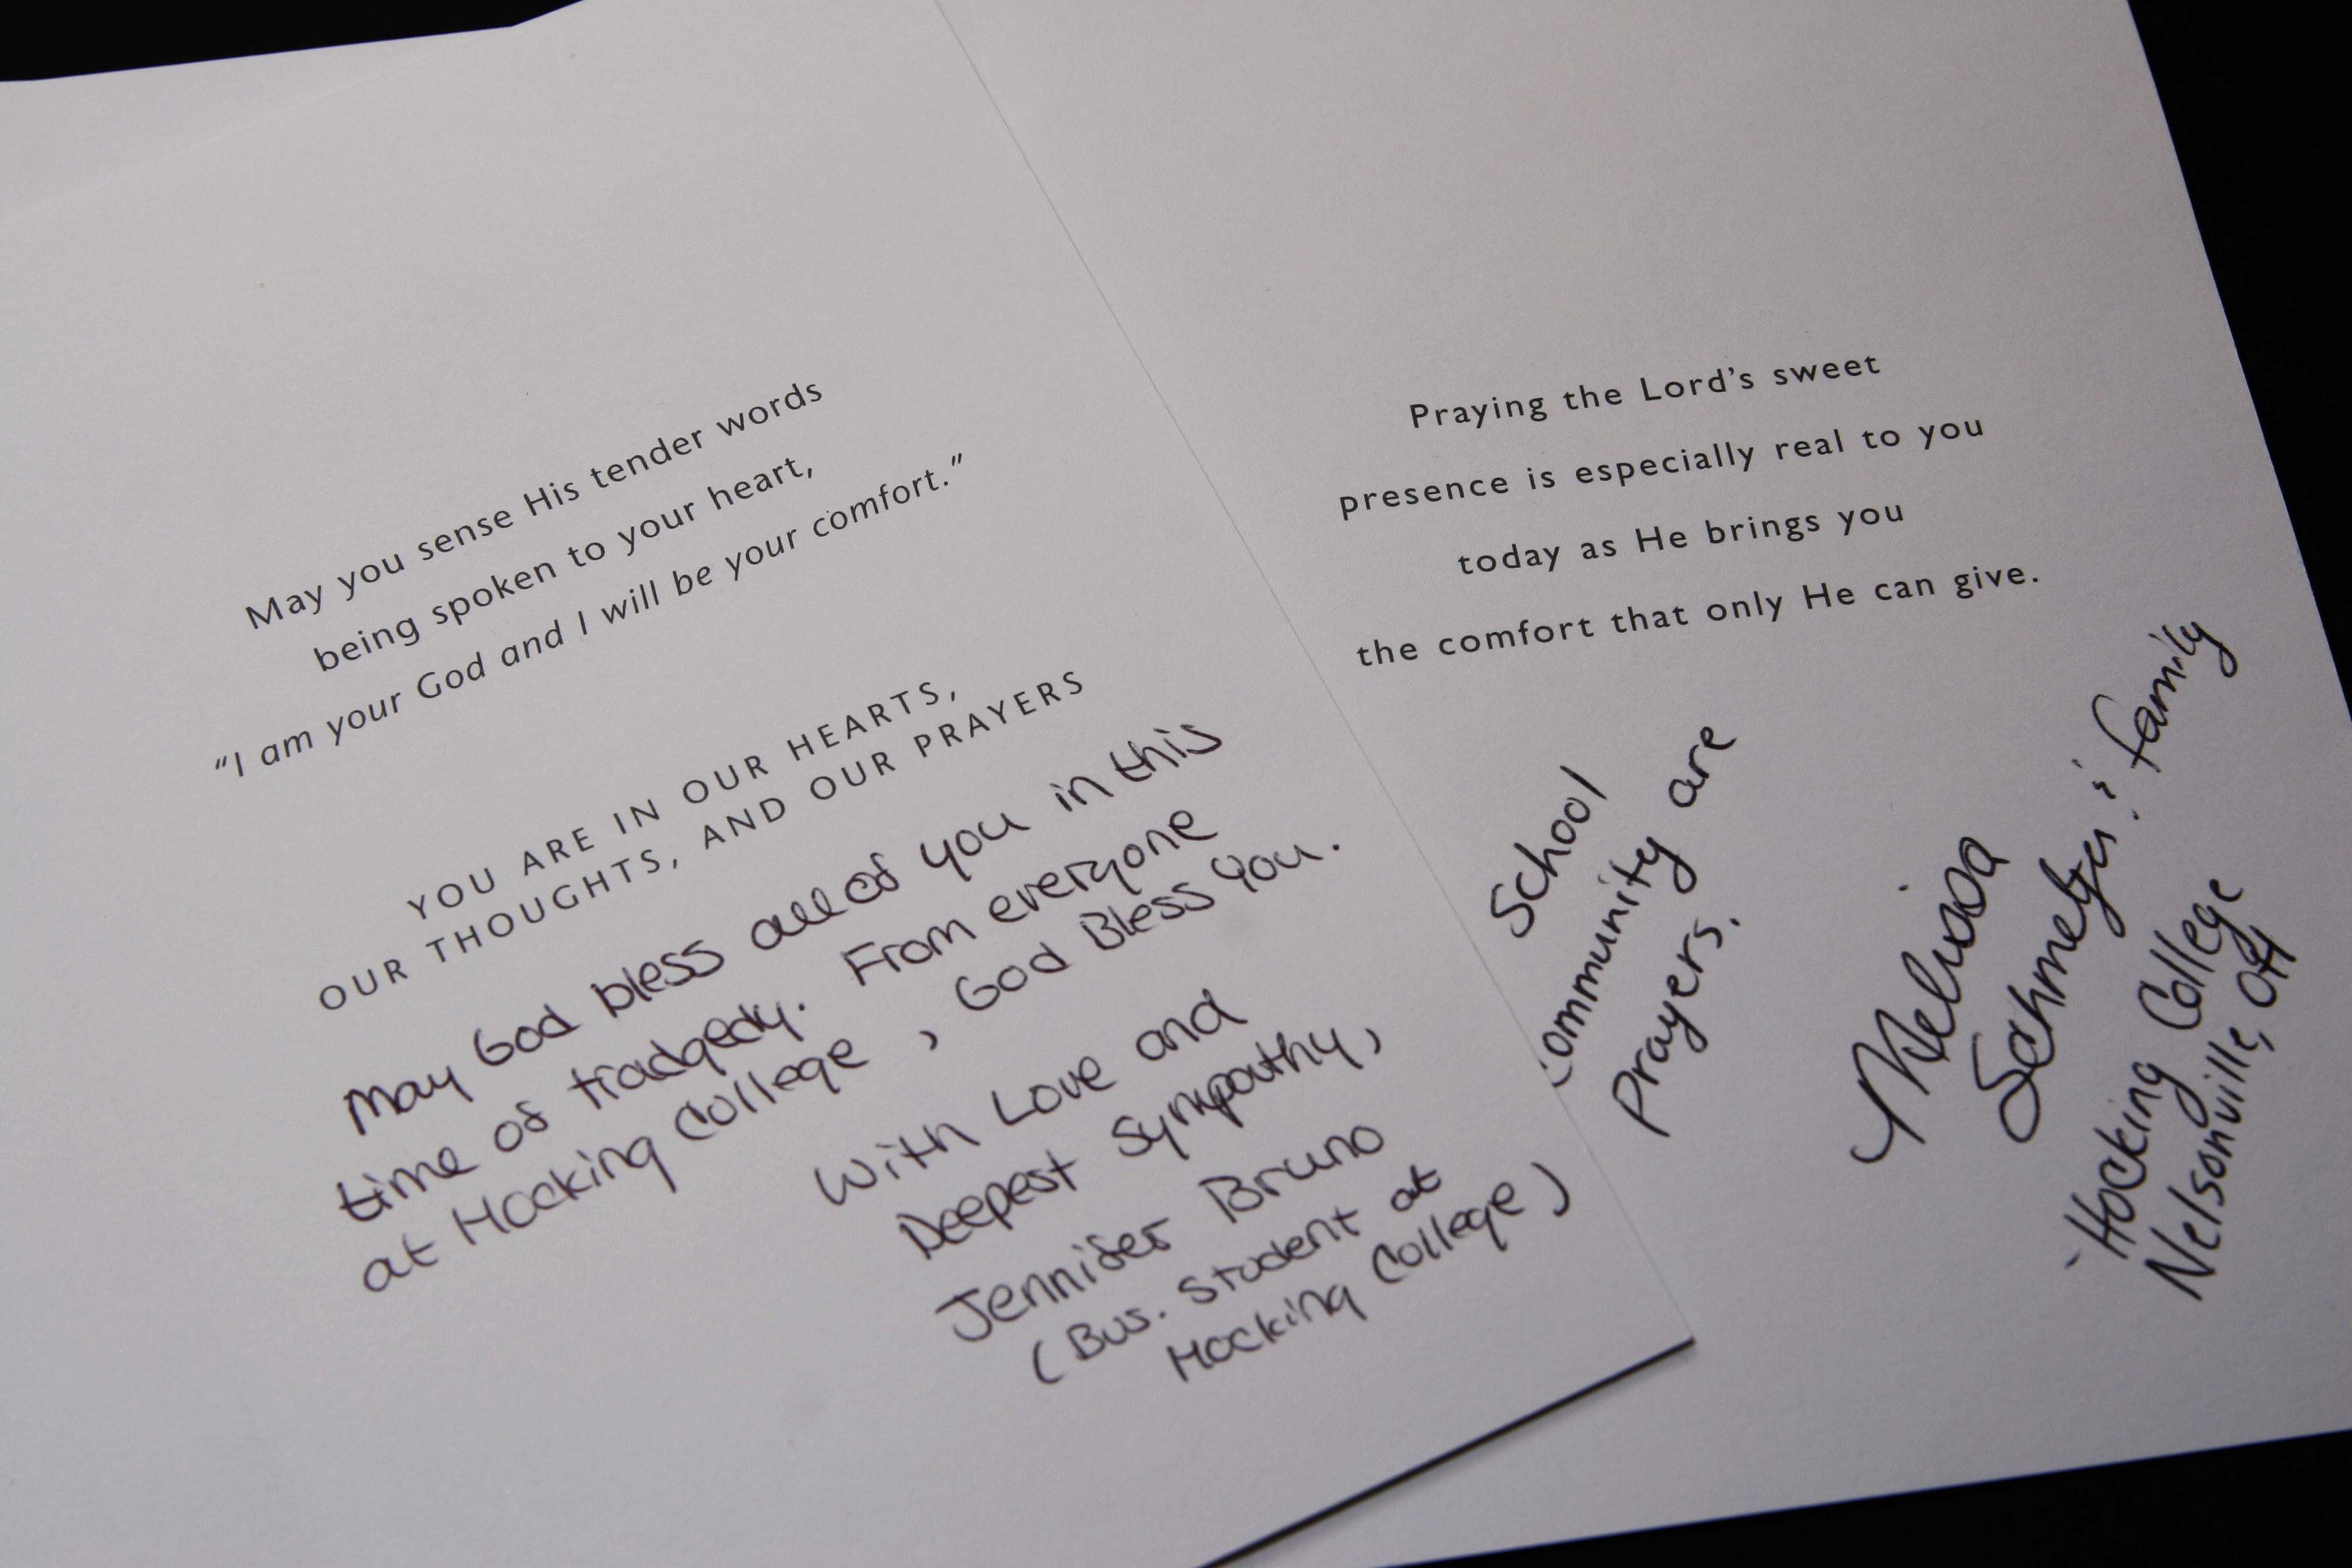 May you sense His tender words
being spoken to your heart,
"I am your God and I will be your comfort."
YOU ARE IN OUR HEARTS,
OUR THOUGHTS, AND OUR PRAYERS
May God bless all of you in this
time of tradgedy. From everyone
at Hocking College, God Bless You.
With Love and
Deepest Sympathy,
Jennifer Bruno
(Bus. Student at
Hocking College)
Praying the Lord's sweet
presence is especially real to you
today as He brings you
the comfort that only He can give.
School
community are
Prayers.
Melissa
family
-Hocking College
Nelsonville, OH